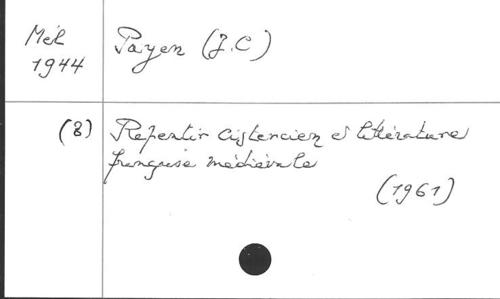 Mél
1944
Payen (J.C)
(8) Repentir cistercien et littérature
française médiévale
(1961)